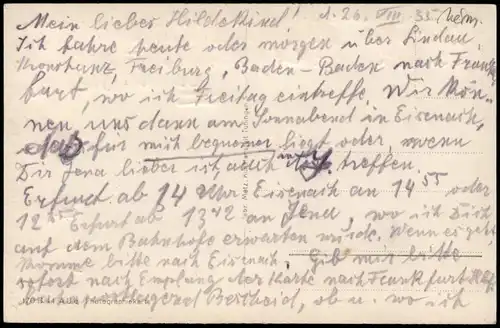 Mein liebes Hildekind! d. 26. VIII. 35
Ich fahre heute oder morgen über Lindau,
Konstanz, Freiburg, Baden-Baden nach Frank-
furt, wo ich Freitag eintreffe. Wir kön-
nen uns dann am Sonnabend in Eisenach,
das für mich bequemer liegt oder, wenn
Dir Jena lieber ist, auch treffen.
Erfurt ab 14 Uhr Eisenach an 14 55 oder
12 Erfurt ab 13 42 an Jena, wo ich Dich
auf dem Bahnhofe erwarten würde. Wenn es geht,
komme bitte nach Eisenach. Gib mir bitte
sofort nach Empfang der Karte nach Frankfurt
postlagernd Bescheid, ob u. wo ich